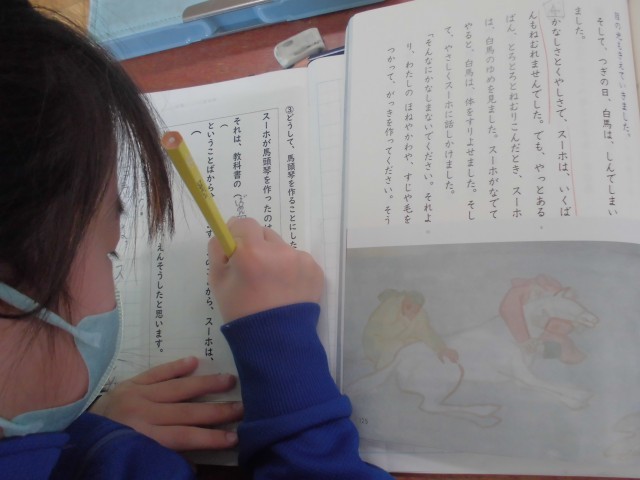 ました。
そして、つぎの日、白馬は、しんでしまい
かなしさとくやしさで、スーホは、いくば
んもねむれませんでした。でも、やっとある
ばん、とろとろとねむりこんだとき、スーホ
は、白馬のゆめを見ました。スーホがなでて
やると、白馬は、体をすりよせました。そし
て、やさしくスーホに話しかけました。
「そんなにかなしまないでください。それよ
り、わたしのほねやかわや、すじや毛を
つかって、がっきを作ってください。そう
③どうして、馬頭琴を作ることにした
スーホが馬頭琴を作ったのは
それは、教科書の(
ということばから、
から、スーホは、
(
えんそうしたと思います。